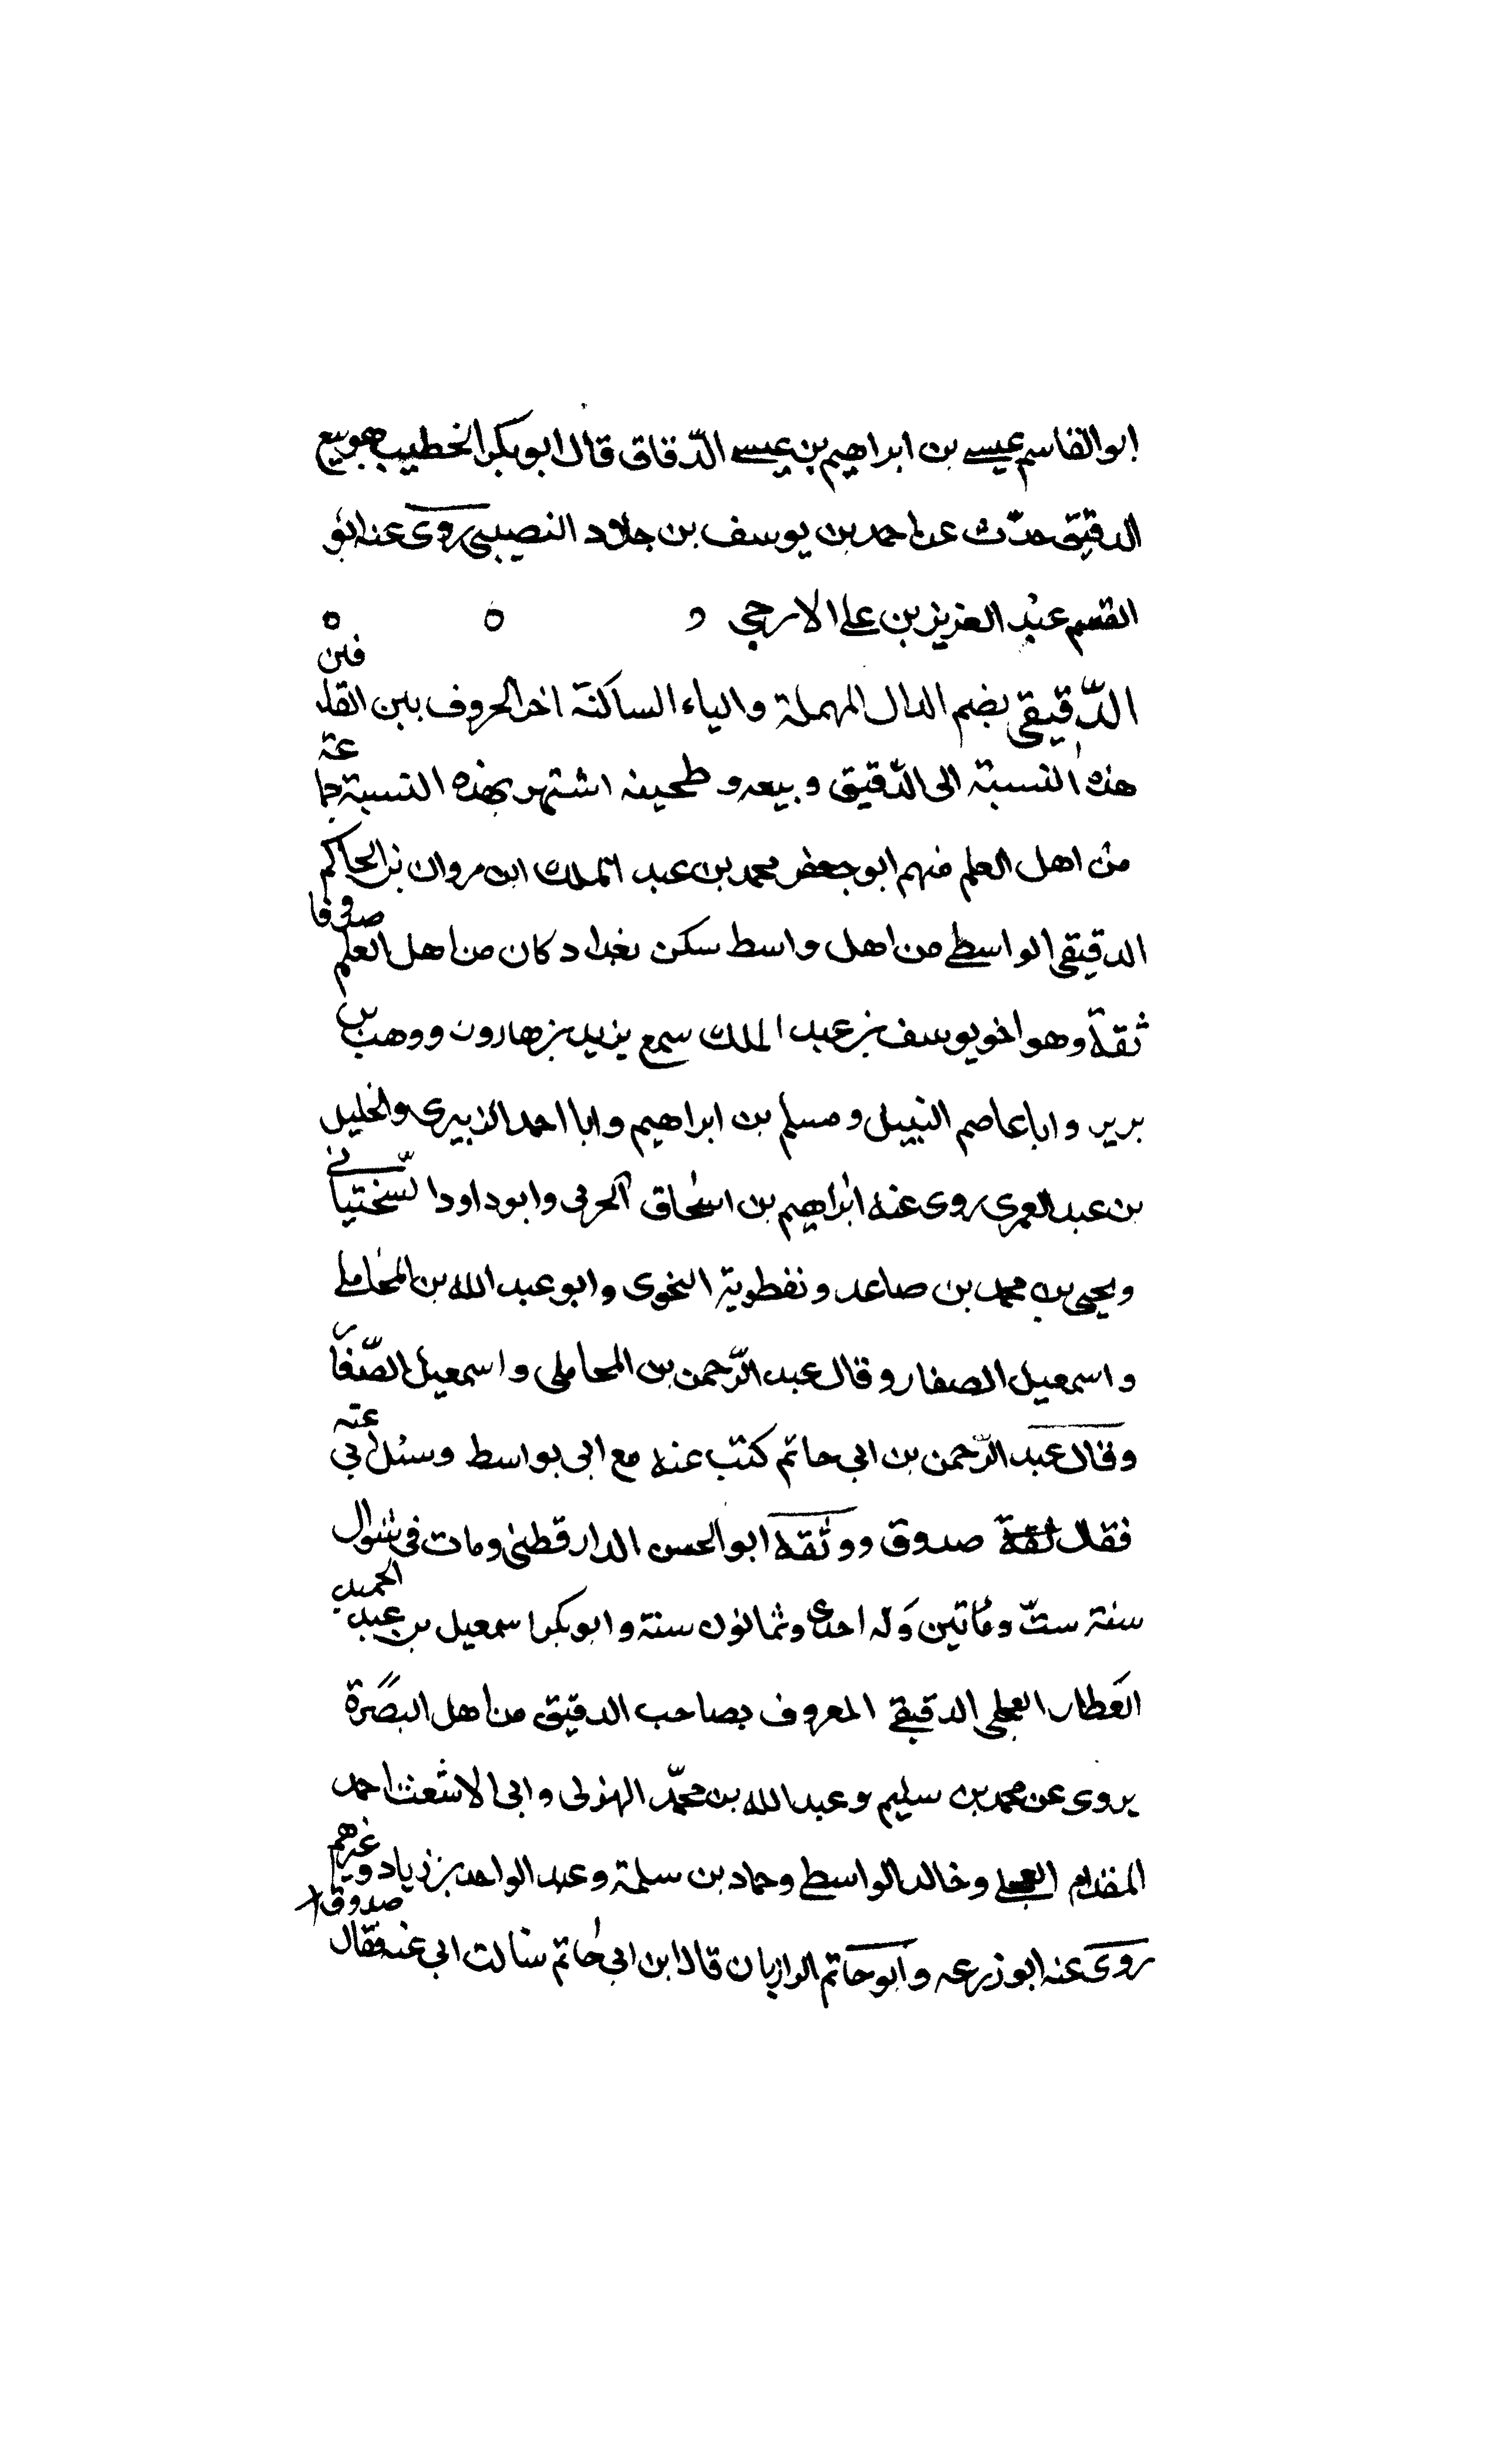 ابو القاسم عيسى بن ابراهيم بن عيسى الدّقاق قال ابو بكر الخطيب هو يبيع
الدقيق حدّث عن احمد بن يوسف بن خلاد النصيبى روى عنه ابو
القسم عبد العزيز بن على الازجى
الدّقيقى بضم الدال المهملة والياء الساكنة اخر الحروف بين القافين
هذه النسبة الى الدّقيق وبيعه و طحينه اشتهر بهذه النسبة جماعة
من اهل العلم منهم ابو جعفر محمد بن عبد الملك ابن مروان بن الحاكم
الدقيقى الواسطى من اهل واسط سكن بغداد كان من اهل العلم صدوقا
ثقة وهو اخو يوسف بن عبد الملك سمع يزيد بن هارون ووهب بن
برير وابا عاصم النبيل ومسلم بن ابراهيم وابا احمد الزبيرى والخليل
بن عبد العمرى روى عنه ابراهيم بن اسحاق الحربى وابو داود السّختيانى
ويحيى بن محمد بن صاعد ونفطوية النحوى وابو عبد الله بن المحاملى
واسمعيل الصفار وقال عبد الرّحمن بن المحاملى واسمعيل الصّفار
وقال عبد الرّحمن بن ابى حاتم كتب عنه مع ابى بواسط وسئل ابى عنه
فقال ثقة صدوق ووثقه ابو الحسن الدارقطنى ومات فى شوال
سنة ستّ ومأتين وله احدى وثمانون سنة وابو بكر اسمعيل بن عبد الحميد
العطار العجلى الدقيقى المعروف بصاحب الدقيق من اهل البصرة
يروى عن محمد بن سليم وعبد الله بن محمّد الهذلى وابى الاشعث احمد
المقدام العجلى وخالد الواسطى وحماد بن سلمة وعبد الواحد بن زياد وغيرهم
روى عنه ابو زرعه وابو حاتم الرازيان قال ابن ابى حاتم سالت ابى عنه فقال صدوق